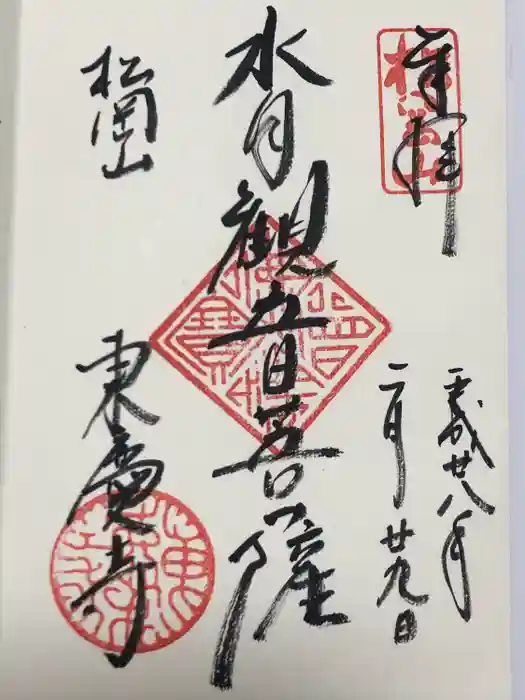 奉拝
平成廿八年
二月廿九日
水月観音菩薩
松岡山
東慶寺